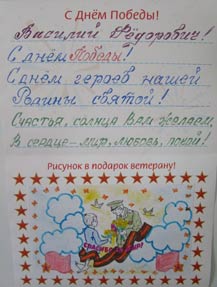 С Днём Победы!
Василий Фёдорович!
С днём Победы!
С днём героев нашей
Родины святой!
Счастья, солнца Вам желаем,
В сердце - мир, любовь, покой!
Рисунок в подарок ветерану!